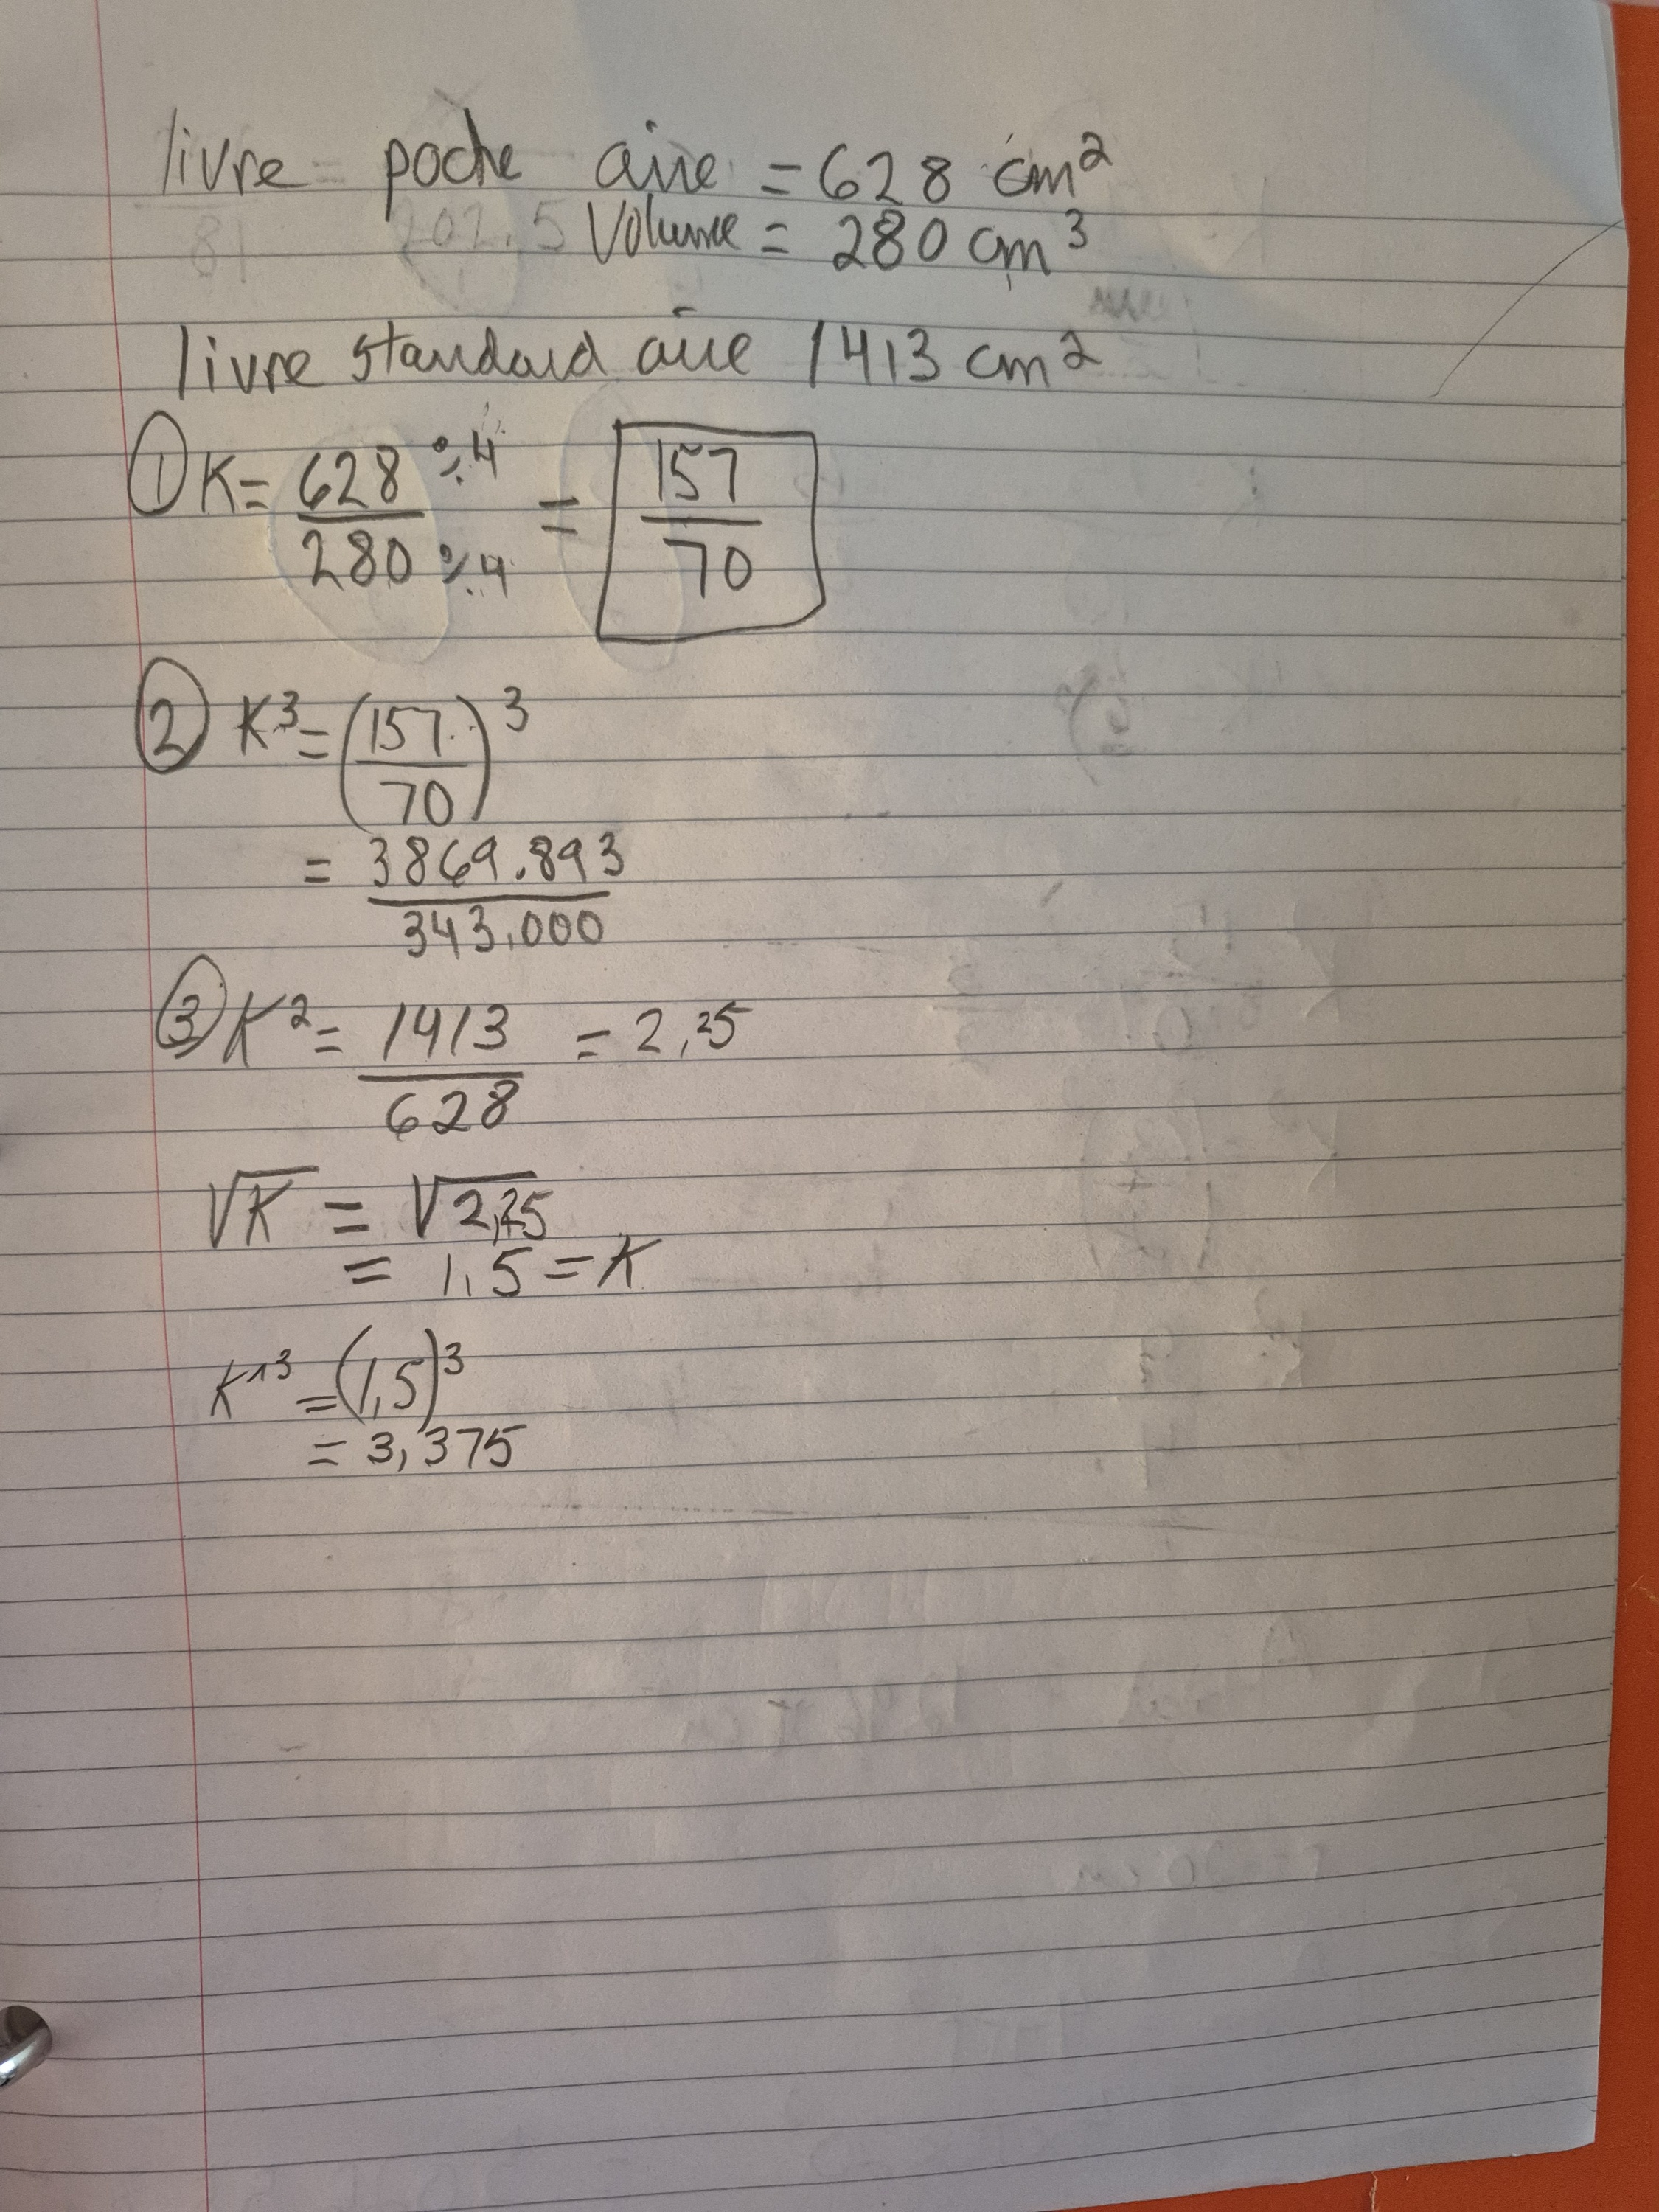 livre = poche aire = 628 cm²
Volume = 280 cm³
livre standard aire 1413 cm²
① K = 628 ÷4 / 280 ÷4 = 157/70
② K³ = (157/70)³
= 3869.893 / 343.000
③ K² = 1413/628 = 2,25
√K = √2,25
= 1,5 = K
K^3 = (1,5)³
= 3,375